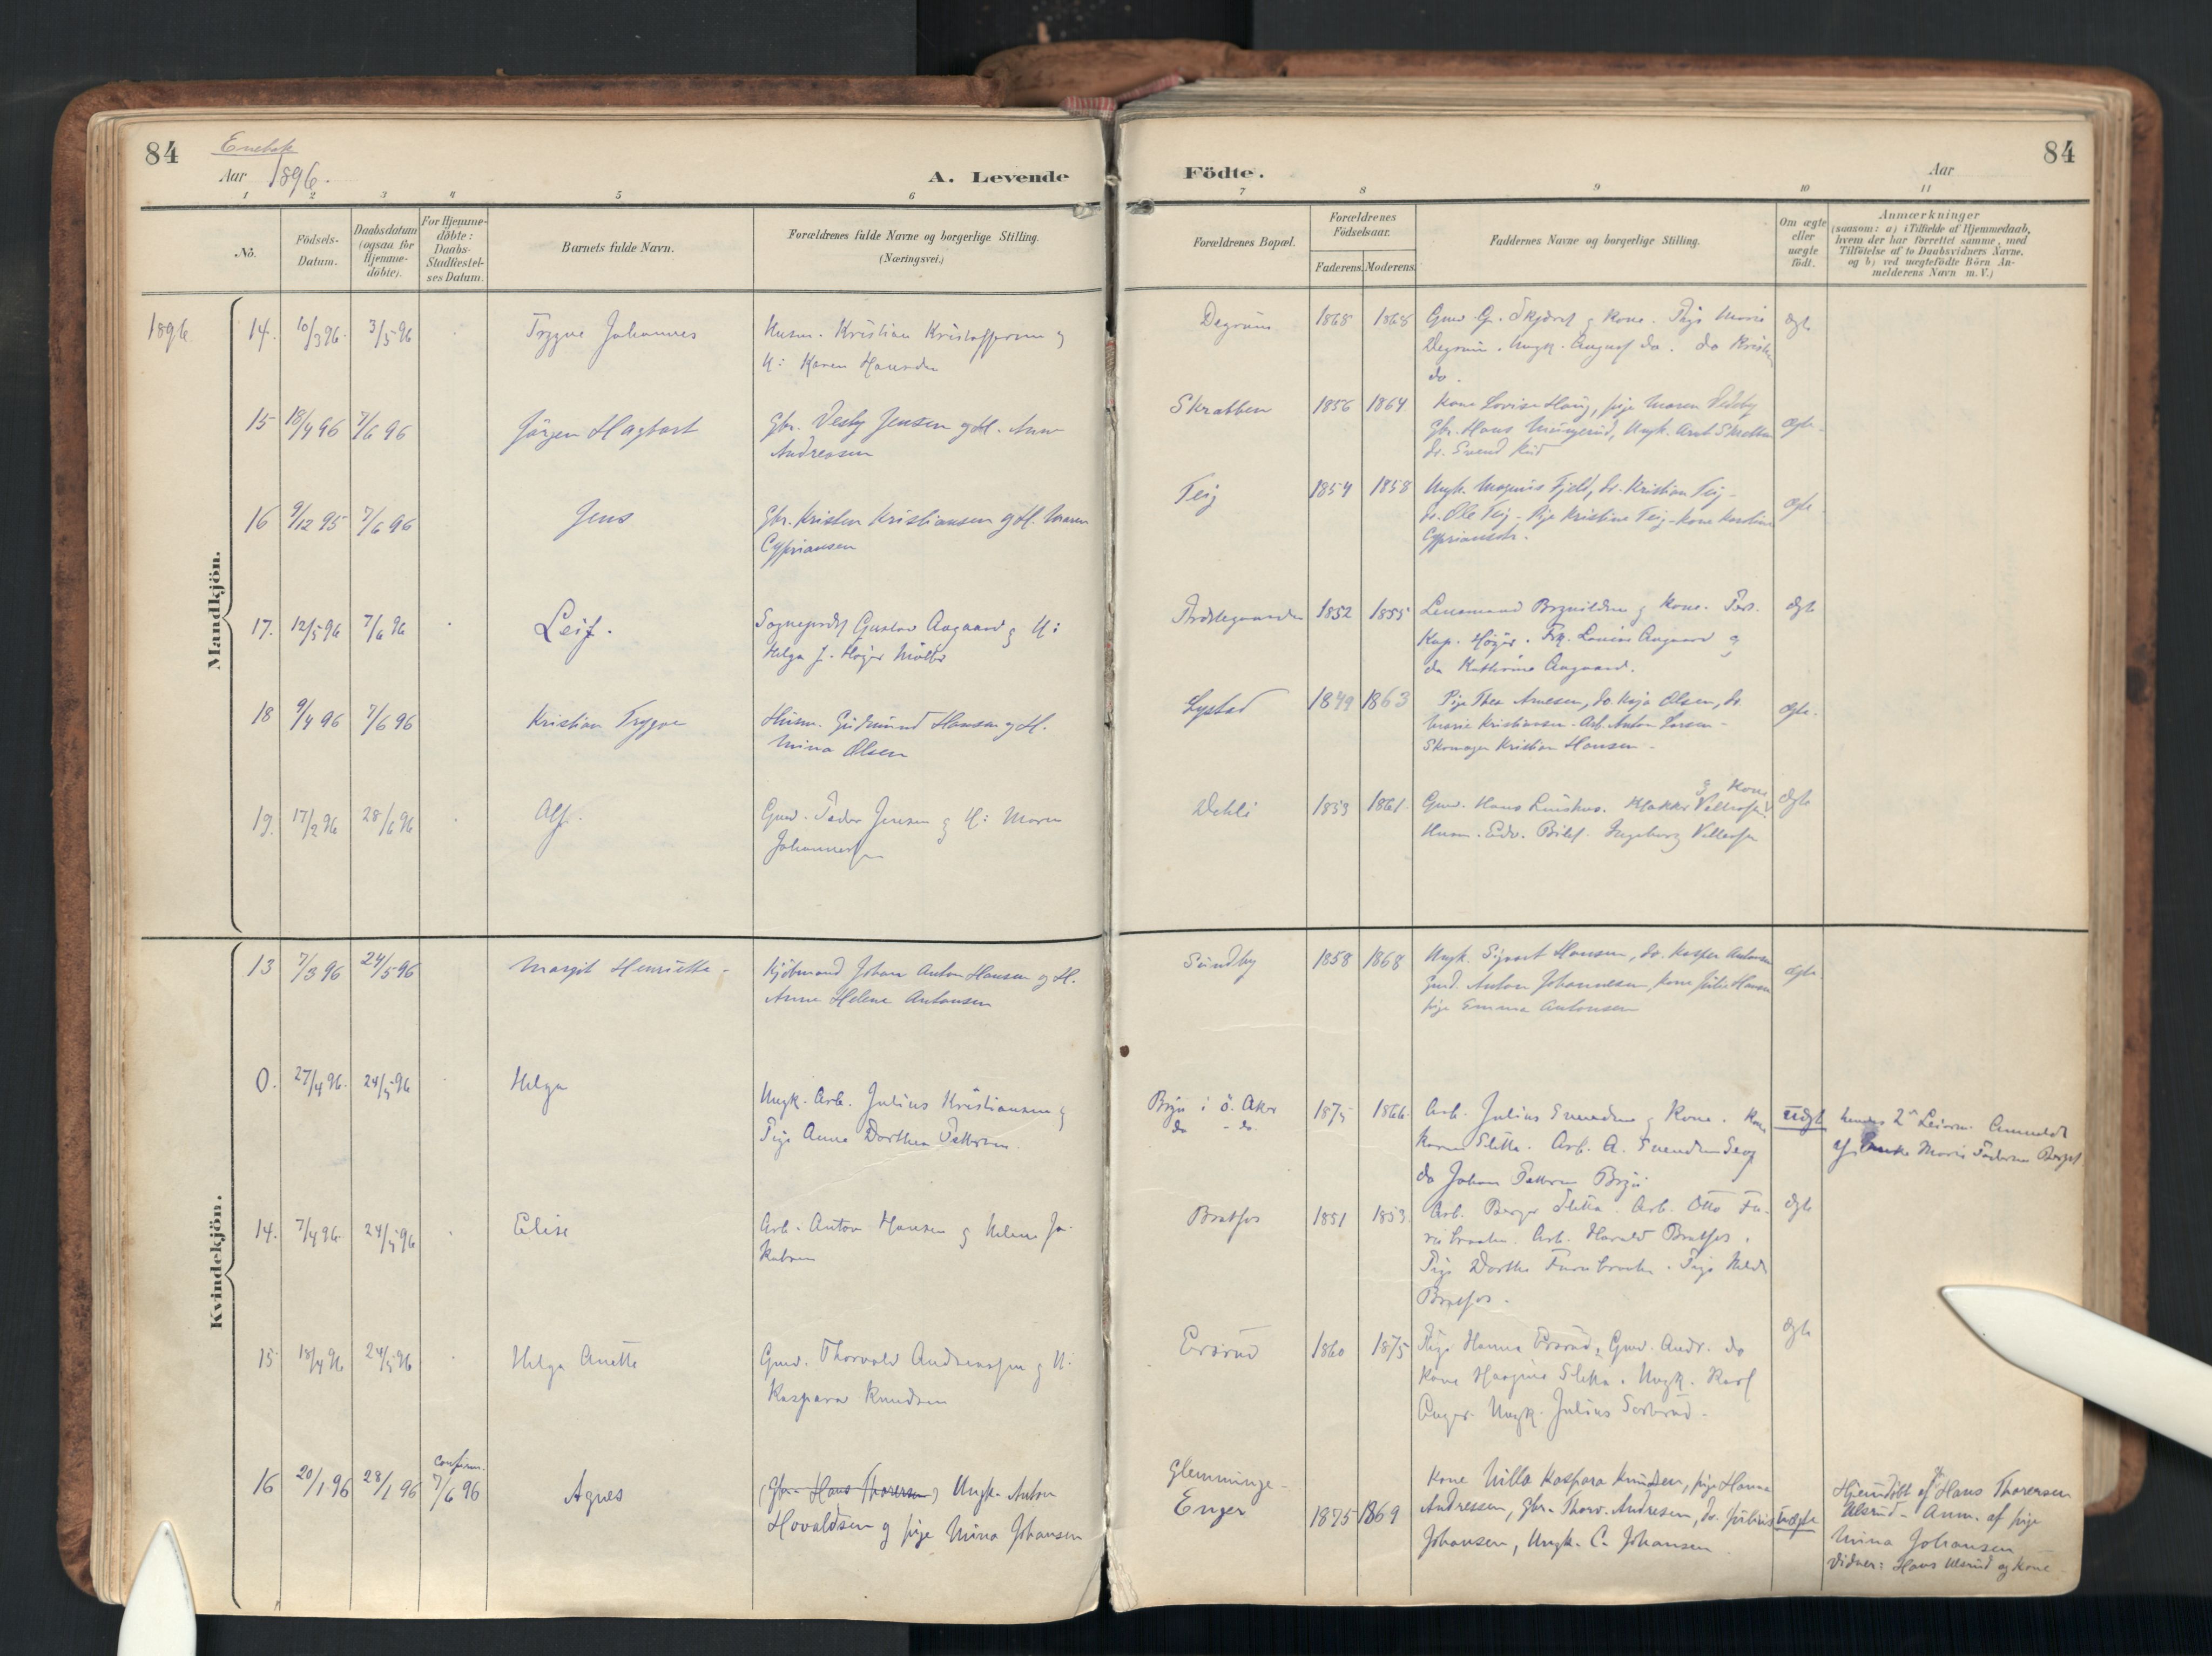 84
Enebak
Aar 1896.
A. Levende
1 2 3 4 5 6
No.
Födsels-Datum.
Daabsdatum (ogsaa for Hjemme-döbte).
For Hjemme-döbte: Daabs-Stadfæstel-ses Datum.
Barnets fulde Navn.
Forældrenes fulde Navne og borgerlige Stilling.
(Næringsvei.)
Mandkjön.
1896 14. 10/3 96. 3/5 96 Trygve Johannes Husm. Kristian Kristoffersen &
H: Karen Hansdtr
15 18/4 96 7/6 96 Jörgen Hagbart Gbr. Vesty Jensen og H. Anne
Andreasen
16 9/12 95 7/6 96 Jens Gbr. Kristen Kristiansen og H. Maren
Cypriansen
17. 12/5 96 7/6 96 Leif. Sognepræst Gustav Aagaard & H:
Helga J. Höyer Möller
18 9/4 96 7/6 96 Kristian Trygve Husm. Gudmund Hansen og H.
Mina Olsen
19. 17/2 96 28/6 96 Alf. Gmd. Peder Jensen & H: Maren
Johannesen
Kvindekjön.
13 7/3 96 24/5 96 Margit Henriette - Kjöbmand Johan Anton Hansen og H.
Anne Helene Antonsen
0. 27/4 96. 24/5 96 Helga
Ungk. Arb. Julius Kristiansen &
Pige Anne Dorthea Pettersen.
14. 7/4 96. 24/5 96 Elise Arb. Anton Hansen & Helene Ja-
kobsen
15 18/4 96 24/5 96 Helga Anette Gmd. Thorvald Andreassen & H:
Kaspara Knudsen
16 20/1 96 28/1 96 Confirm. 7/6 96 Agnes (Gbr. Hans Thoresen) Ungk. Anton
Hovaldsen og pige Mina Johansen
84
Födte.
Aar
7 8 9 10 11
Forældrenes Bopæl.
Forældrenes Födselsaar.
Faderens. Moderens.
Faddernes Navne og borgerlige Stilling.
Om ægte eller uægte födt.
Anmærkninger
(saasom: a) i Tilfælde af Hjemmedaab,
hvem der har forrettet samme, med
Tilföielse af to Daabsvidners Navne,
og b) ved uægtefödte Börn An-
melderens Navn m. V.)
Degrum 1868 1868 Gmd. G. & Kone. Pige Marie ægte
Degrum. Ungk. August do. do
do.
Skrabben 1856 1864 Kone Lovise Haug, pige Maren
Gbr. Hans, Ungk. ægte
do. Svend
Teig 1854 1858 Ungk. Magnus Fjeld, do. Kristian Teig - ægte
do. Ole Teig - Pige Kristine Teig - Kone Karoline
Cypriansen.
Præstegaarden 1852 1855 Lensmand & Kone. Pers. ægte
Kap. Höyer. Frk. Louise Aagaard og
do Kathrine Aagaard.
Lystad 1849 1863 Pige Thea Arnesen, do. Kaja Olsen, do. ægte.
Marie Kristiansen - Arb. Anton Larsen -
Skomager Kristian Hansen -
Dehli 1853 1861. & Kone
Gmd. Hans. ægte
Husm. Edv. Ingeborg
Sundby 1858 1868 Ungk. Sigvart Hansen, do. Kasper Antonsen ægte
Gmd. Anton Johannesen, Kone Julie Hansen
pige Emma Antonsen
Bryn i Ö. Aker 1875 1866. Arb. Julius Svendsen & Kone. Kone uægt hendes 2det Leierm. Anmeldt
do - do. Karen Sletta. Arb. A. Svendsen af Enke Marie Pedersen
do Johan Pettersen Bryn
Bratfos 1851 1853. Arb. Sletta. Arb. Otto Fu- ægte
rubraaten. Arb. Harald Bratfos.
Pige Dorthe Furubraaten. Pige
Bratfos.
Ersrud 1860 1875 Pige Hanna Ersrud, Gmd. Andr. do ægte
Kone Sletta. Ungk. Karl
Enger. Ungk. Julius
Glemminge -
Enger 1875 1869 Kone Milla Kaspara Knudsen, pige Hanna
Andressen, gbr. Thorv. Andresen, do. Julius uægte
Johansen, Ungk. C. Johansen
Hjemdöbt af Hans Thoresen
Ulsrud - Anm. af pige
Mina Johansen
Vidner: Hans Ulsrud og Kone